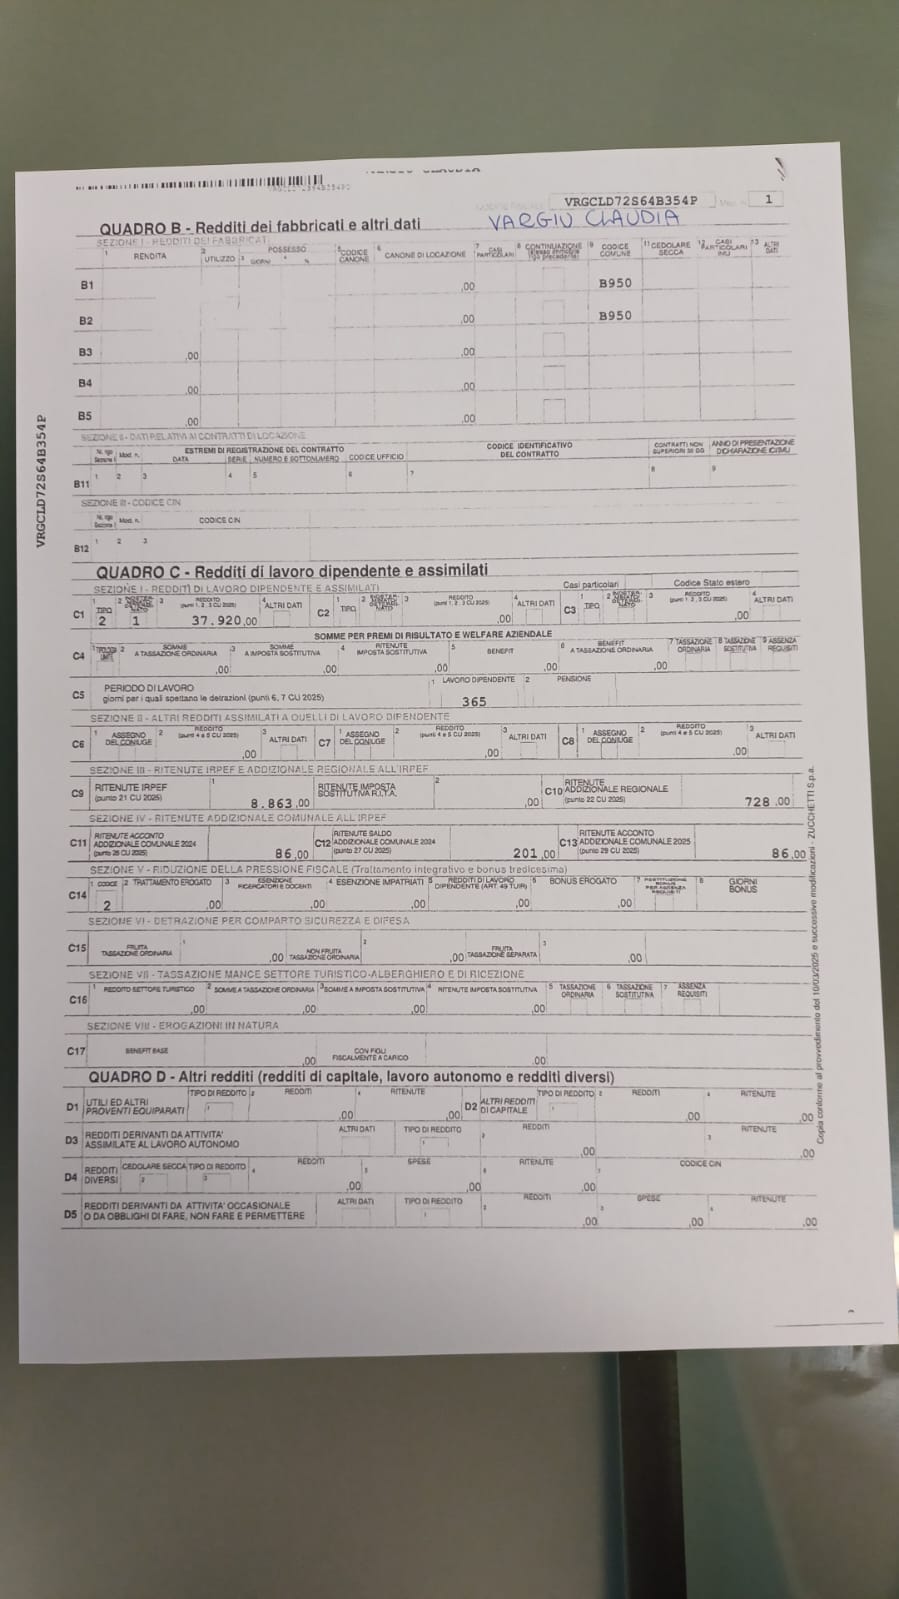 VRGCLD72S64B354P
1
VARGIU CLAUDIA
QUADRO B - Redditi dei fabbricati e altri dati
SEZIONE I - REDDITI DEI FABBRICATI
RENDITA UTILIZZO POSSESSO GIORNI % CODICE CANONE CANONE DI LOCAZIONE CASI PARTICOLARI CONTINUAZIONE CODICE COMUNE CEDOLARE SECCA CASI PARTICOLARI IMU ALTRI DATI
B1 ,00 B950
B2 ,00 B950
B3 ,00 ,00
B4 ,00 ,00
B5 ,00 ,00
SEZIONE II - DATI RELATIVI AI CONTRATTI DI LOCAZIONE
N. rigo Sezione I Mod. n. ESTREMI DI REGISTRAZIONE DEL CONTRATTO CODICE IDENTIFICATIVO DEL CONTRATTO CONTRATTI NON SUPERIORI 30 GG ANNO DI PRESENTAZIONE DICHIARAZIONE ICI/IMU
DATA SERIE NUMERO E SOTTONUMERO CODICE UFFICIO
B11 1 2 3 4 5 6 7 8 9
SEZIONE III - CODICE CIN
N. rigo Sezione I Mod. n. CODICE CIN
B12 1 2 3
QUADRO C - Redditi di lavoro dipendente e assimilati
SEZIONE I - REDDITI DI LAVORO DIPENDENTE E ASSIMILATI Casi particolari Codice Stato estero
C1 TIPO 2 1 REDDITO (punti 1, 2, 3 CU 2025) 37.920,00 ALTRI DATI C2 TIPO REDDITO (punti 1, 2, 3 CU 2025) ,00 ALTRI DATI C3 TIPO REDDITO (punti 1, 2, 3 CU 2025) ,00 ALTRI DATI
SOMME PER PREMI DI RISULTATO E WELFARE AZIENDALE
C4 TIPOLOGIA LIMITE SOMME A TASSAZIONE ORDINARIA ,00 SOMME A IMPOSTA SOSTITUTIVA ,00 RITENUTE IMPOSTA SOSTITUTIVA ,00 BENEFIT ,00 BENEFIT A TASSAZIONE ORDINARIA ,00 TASSAZIONE ORDINARIA TASSAZIONE SOSTITUTIVA ASSENZA REQUISITI
C5 PERIODO DI LAVORO
giorni per i quali spettano le detrazioni (punti 6, 7 CU 2025) 1 LAVORO DIPENDENTE 365 2 PENSIONE
SEZIONE II - ALTRI REDDITI ASSIMILATI A QUELLI DI LAVORO DIPENDENTE
C6 ASSEGNO DEL CONIUGE REDDITO (punti 4 e 5 CU 2025) ,00 ALTRI DATI C7 ASSEGNO DEL CONIUGE REDDITO (punti 4 e 5 CU 2025) ,00 ALTRI DATI C8 ASSEGNO DEL CONIUGE REDDITO (punti 4 e 5 CU 2025) ,00 ALTRI DATI
SEZIONE III - RITENUTE IRPEF E ADDIZIONALE REGIONALE ALL'IRPEF
C9 RITENUTE IRPEF (punto 21 CU 2025) 8.863,00 RITENUTE IMPOSTA SOSTITUTIVA R.I.T.A. ,00 C10 RITENUTE ADDIZIONALE REGIONALE (punto 22 CU 2025) 728,00
SEZIONE IV - RITENUTE ADDIZIONALE COMUNALE ALL'IRPEF
C11 RITENUTE ACCONTO ADDIZIONALE COMUNALE 2024 (punto 26 CU 2025) 86,00 C12 RITENUTE SALDO ADDIZIONALE COMUNALE 2024 (punto 27 CU 2025) 201,00 C13 RITENUTE ACCONTO ADDIZIONALE COMUNALE 2025 (punto 29 CU 2025) 86,00
SEZIONE V - RIDUZIONE DELLA PRESSIONE FISCALE (Trattamento integrativo e bonus tredicesima)
C14 CODICE 2 TRATTAMENTO EROGATO ,00 ESENZIONE RICERCATORI E DOCENTI ,00 ESENZIONE IMPATRIATI ,00 REDDITI DI LAVORO DIPENDENTE (ART. 49 TUIR) ,00 BONUS EROGATO ,00 GIORNI BONUS
SEZIONE VI - DETRAZIONE PER COMPARTO SICUREZZA E DIFESA
C15 FRUITA TASSAZIONE ORDINARIA ,00 NON FRUITA TASSAZIONE ORDINARIA ,00 FRUITA TASSAZIONE SEPARATA ,00
SEZIONE VII - TASSAZIONE MANCE SETTORE TURISTICO-ALBERGHIERO E DI RICEZIONE
C16 REDDITO SETTORE TURISTICO ,00 SOMME A TASSAZIONE ORDINARIA ,00 SOMME A IMPOSTA SOSTITUTIVA ,00 RITENUTE IMPOSTA SOSTITUTIVA ,00 TASSAZIONE ORDINARIA TASSAZIONE SOSTITUTIVA ASSENZA REQUISITI
SEZIONE VIII - EROGAZIONI IN NATURA
C17 BENEFIT BASE ,00 CON FIGLI FISCALMENTE A CARICO ,00
QUADRO D - Altri redditi (redditi di capitale, lavoro autonomo e redditi diversi)
D1 UTILI ED ALTRI PROVENTI EQUIPARATI TIPO DI REDDITO REDDITI ,00 RITENUTE ,00 D2 ALTRI REDDITI DI CAPITALE TIPO DI REDDITO REDDITI ,00 RITENUTE ,00
D3 REDDITI DERIVANTI DA ATTIVITA' ASSIMILATE AL LAVORO AUTONOMO ALTRI DATI TIPO DI REDDITO REDDITI ,00 RITENUTE ,00
D4 REDDITI DIVERSI CEDOLARE SECCA TIPO DI REDDITO REDDITI ,00 SPESE ,00 RITENUTE ,00 CODICE CIN
D5 REDDITI DERIVANTI DA ATTIVITA' OCCASIONALE O DA OBBLIGHI DI FARE, NON FARE E PERMETTERE ALTRI DATI TIPO DI REDDITO REDDITI ,00 SPESE ,00 RITENUTE ,00
VRGCLD72S64B354P
Copia conforme al provvedimento del 10/03/2025 e successive modificazioni - ZUCCHETTI S.p.a.